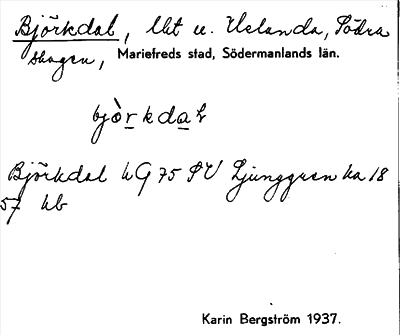 Björkdal, lht u. Uslanda, Södra
skogen, Mariefreds stad, Södermanlands län.
bjò̀rkdaḷ
Björkdal hG 75 SV Ljunggren ka 18
57 hb
Karin Bergström 1937.